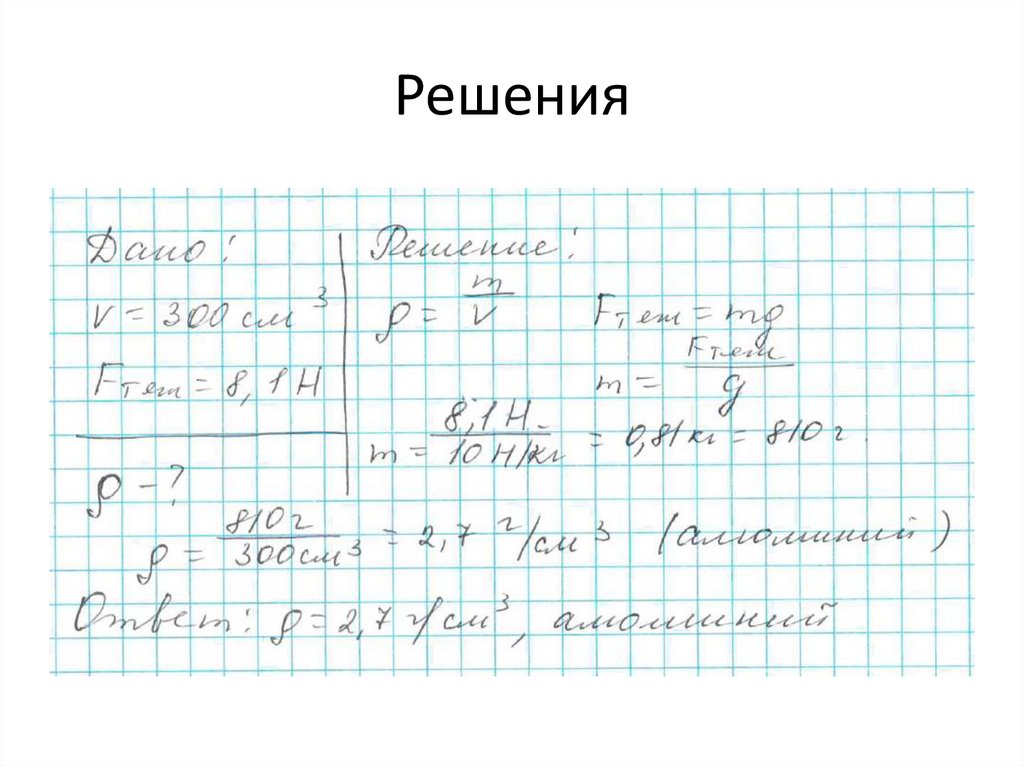 Решения
Дано:
V = 300 см³
Fтяж = 8,1 Н
ρ - ?
Решение:
ρ = m/V
Fтяж = mg
m = Fтяж/g
m = 8,1 Н/10 Н/кг = 0,81 кг = 810 г.
ρ = 810 г/300 см³ = 2,7 г/см³ (алюминий)
Ответ: ρ = 2,7 г/см³, алюминий